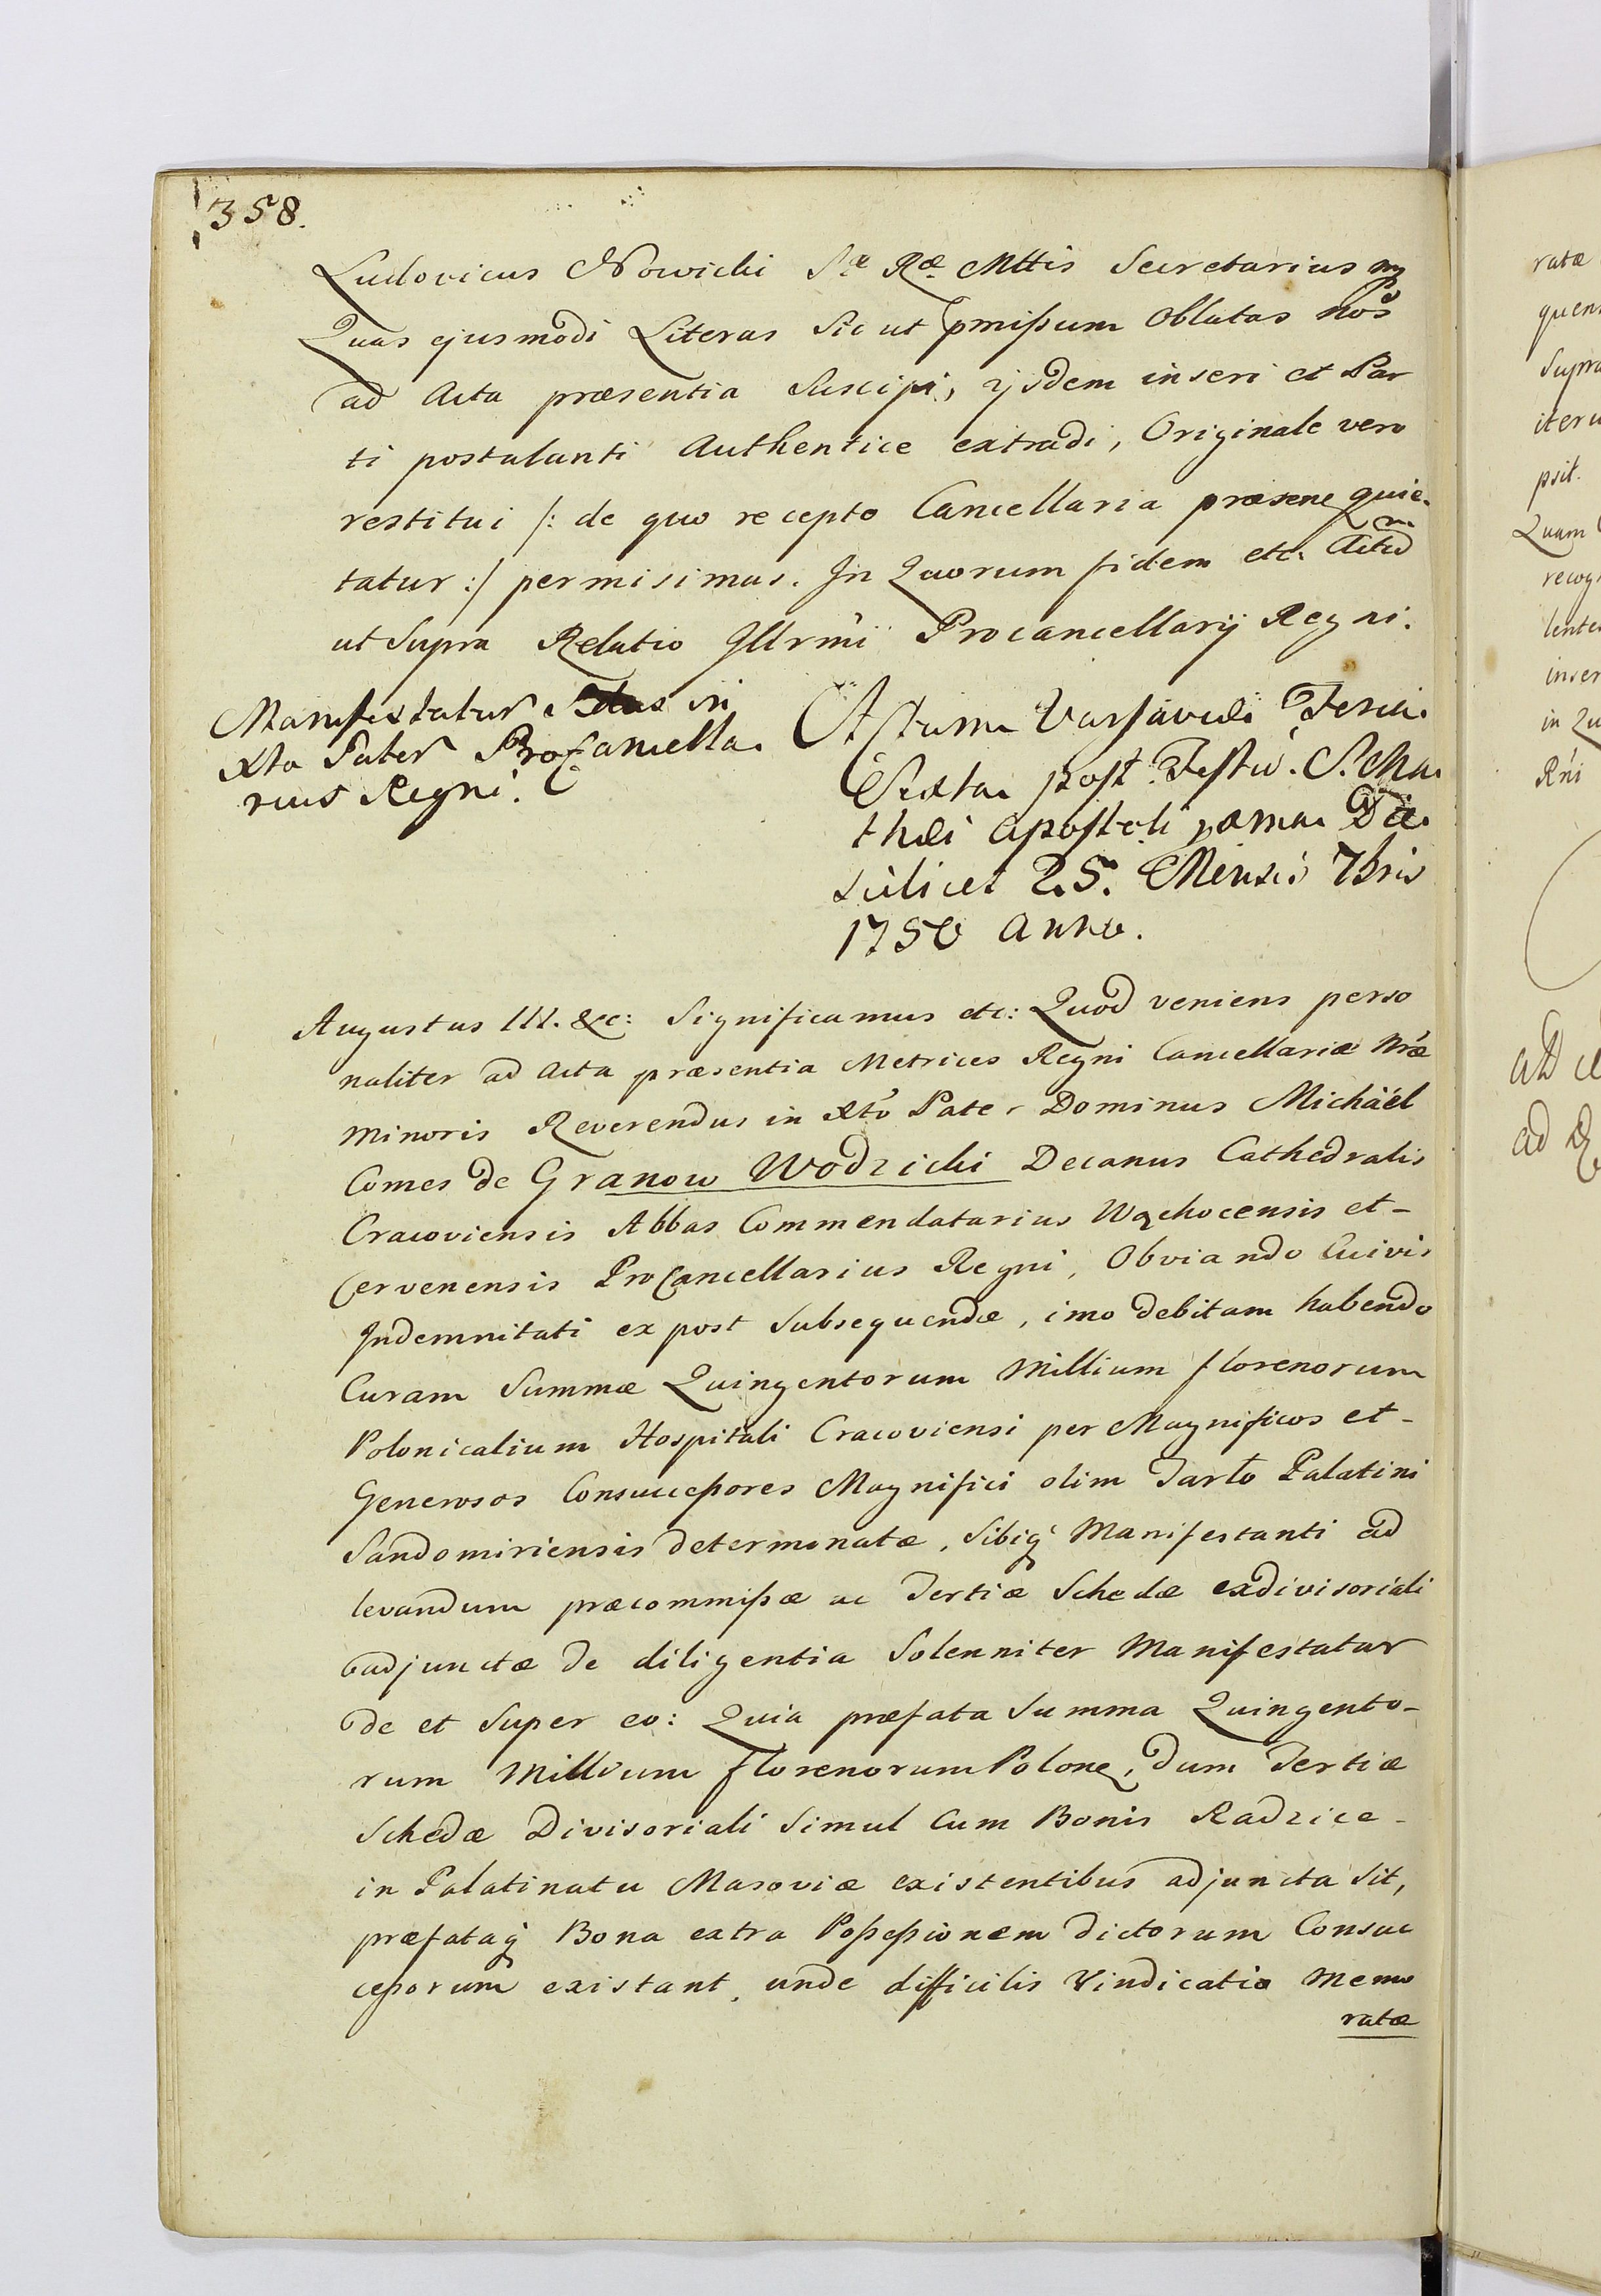 358.
Ludovicus Nowicki Sæ Ræ Mttis Secretarius mp
Quas ejusmodi Literas Sic ut pmissum Oblatas nos
ad Acta præsentia Suscipi, ijsdem inseri et Par
ti postulanti Authentice extradi, Originale vero
restitui /: de quo recepto Cancellaria præsens quie-
tatur :/ permisimus. In Quorum fidem etc. Actū
ut Supra Relatio Illrmi Procancellarij Regni.
Manifestatur in
Xto Pater ProCancella
rius Regni.
Actum Varsaviæ Feria
Sexta post Festū S. Ma
thæi Apostoli Die
scilicet 25. Mensis 7bris
1750 Anno.
Augustus III. &c: Significamus etc: Quod veniens perso
naliter ad Acta præsentia Metrices Regni Cancellariæ Nræ
Minoris Reverendus in Xto Pater Dominus Michäel
Comes de Granow Wodzicki Decanus Cathedralis
Cracoviensis Abbas Commendatarius Wąchocensis et-
Cervenensis ProCancellarius Regni, Obviando Cuivis
Indemnitati ex post Subsequendæ, imo debitam habendo
Curam Summæ Quingentorum Millium florenorum
Polonicalium Hospitali Cracoviensi per Magnificos et-
Generosos Consuccessores Magnifici olim Tarło Palatini
Sandomiriensis determinatæ, Sibiq Manifestanti ad
levandum præcommissæ ac Tertiæ Schedæ exdivisoriali
adjunctæ de diligentia Solenniter Manifestatur
de et Super eo: Quia præfata Summa Quingento-
rum Millium florenorum Polonq, dum Tertiæ
Schedæ Divisoriali Simul Cum Bonis Radzice-
in Palatinatu Masoviæ existentibus adjuncta Sit,
præfataq Bona extra Possessionem dictorum Consuc
cessorum existant, unde difficilis Vindicatio Memo
ratæ
ratæ
quens
Supra
iteru
psit.
Quam
recog
lente
inser
in Qu
Rni
ad